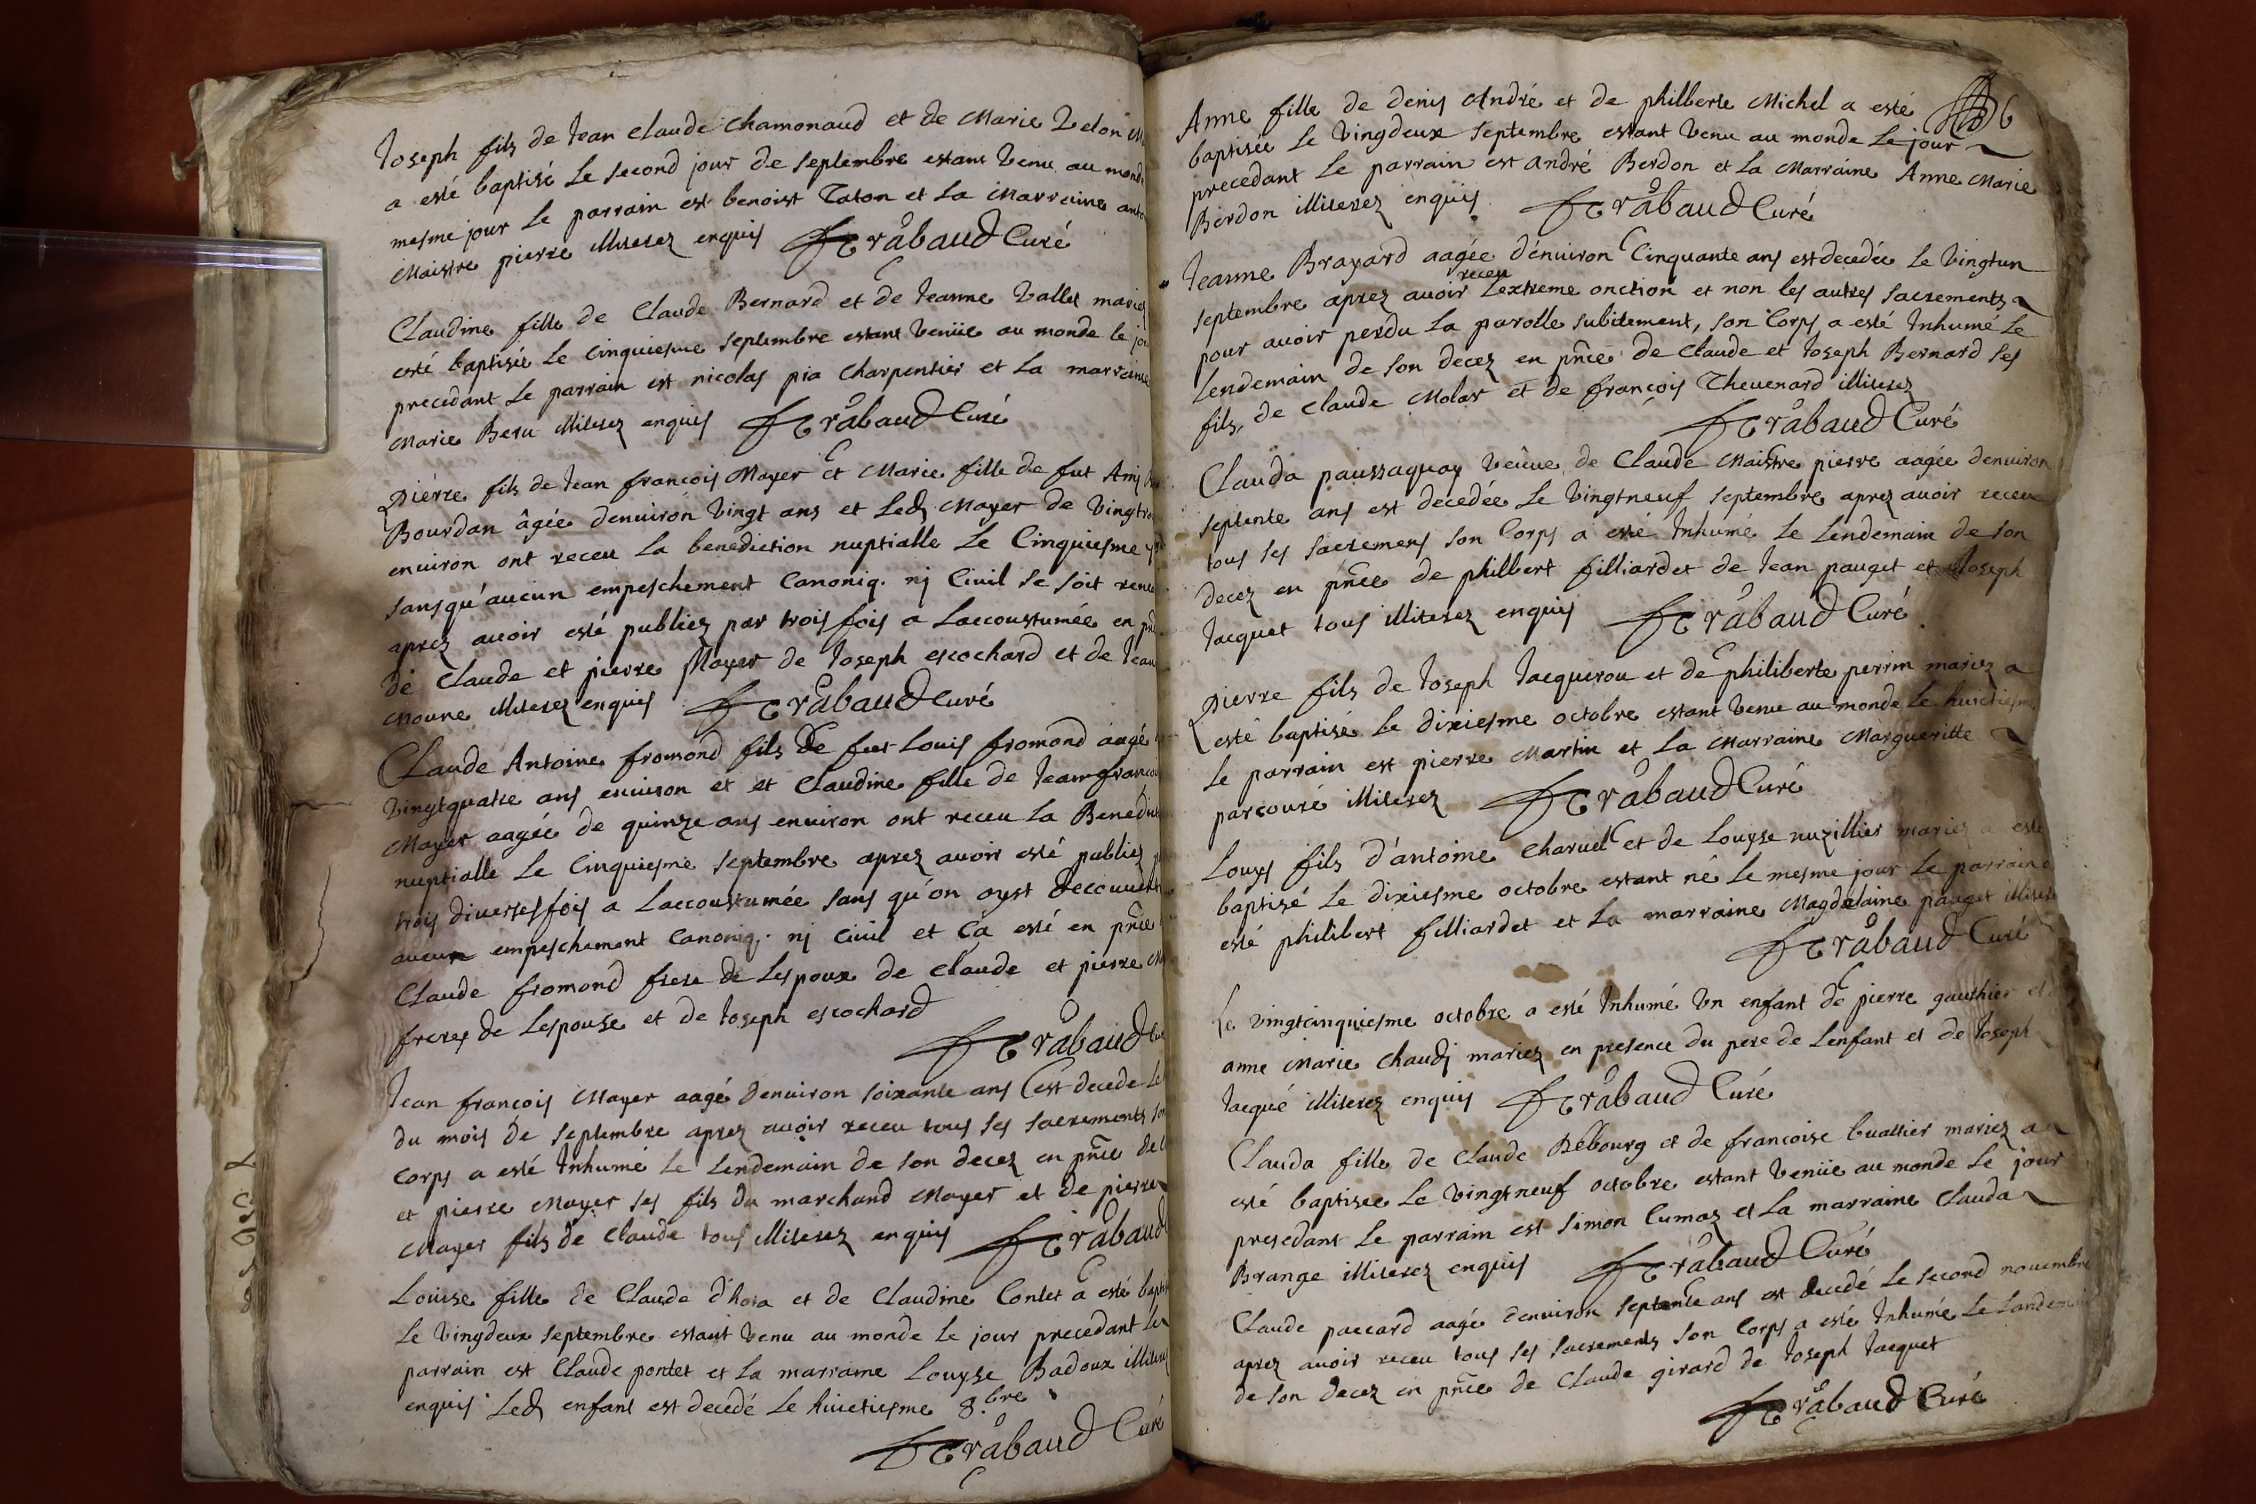 Joseph fils de Jean Claude Chamonaud et de Marie Velon
a esté baptisé Le second jour de septembre estant venu au monde
mesme jour Le parrain est benoist Taton et La Marraine
Maistre pierre illiterez enquis Trabaud Curé
Claudine fille de Claude Bernard et de Jeanne Vallet mariez
esté baptisée Le Cinquiesme septembre estant venüe au monde le
precedant Le parrain est nicolas pia Charpentier et La marraine
Marie Beru illiterez enquis Trabaud Curé
Pierre fils de Jean françois Mayer et Marie fille de fut
Bourdan âgée denuiron Vingt ans et Led. Mayer de
enuiron ont receu La benediction nuptialle Le Cinquiesme
sans qu'aucun empeschement Canoniq. nj Ciuil se soit
aprez auoir esté publiez par trois fois a Laccoustumée en
de Claude et pierre Mayer de Joseph escochard et de Jean
Moune illiterez enquis Trabaud Curé
Claude Antoine fromond fils de feu Louis fromond aagé
Vingtquatre ans enuiron et et Claudine fille de Jean françois
Mayer aagée de quinze ans enuiron ont receu La
nuptialle Le Cinquiesme septembre aprez auoir esté publiez
trois diuerses fois a Laccoustumée sans qu'on ayst decouuert
aucun empeschement Canoniq. nj Ciuil et Ça esté en pñce
Claude fromond frere de Lespoux de Claude et pierre
freres de Lespouse et de Joseph escochard
Trabaud
Jean françois Mayer aagé denuiron soixante ans est decedé
du mois de septembre aprez auoir receu tous ses sacrements
Corps a esté Inhumé Le Lendemain de son decez en pñce
et pierre Mayer ses fils du marchand Mayer et de pierre
Mayer fils de Claude tous illiterez enquis Trabaud
Louise fille de Claude d'hora et de Claudine Contet a esté
Le Vingdeux septembre estant Venu au monde le jour precedant Le
parrain est Claude pontet et La marraine Louyse Badoux
enquis Led. enfant est decedé Le huictiesme 8.bre
Trabaud Curé
6
Anne fille de denis André et de philberte Michel a esté
baptisée Le Vingdeux septembre estant Venu au monde Le jour
precedant Le parrain est André Berdon et La Marraine Anne Marie
Berdon illiterez enquis Trabaud Curé
Jeanne Brayard aagée d'enuiron Cinquante ans est decedée Le Vingtun
septembre aprez auoir receu Lextreme onction et non les autres sacrements
pour auoir perdu La parolle subitement, son Corps a esté Inhumé Le
Lendemain de son decez en pñce de Claude et Joseph Bernard ses
fils, de Claude Molar et de françois Theuenard illiterez
Trabaud Curé
Clauda paussaquay Veüue de Claude Maistre pierre aagée denuiron
septente ans est decedée Le Vingtneuf septembre aprez auoir receu
tous ses sacremens son Corps a esté Inhumé Le Lendemain de son
decez en pñce de philbert filliardet de Jean pauget et Joseph
Jacquet tous illiterez enquis Trabaud Curé
Pierre fils de Joseph Jacquerou et de philiberte perrin mariez a
esté baptisé Le dixiesme octobre estant Venu au monde Le
Le parrain est pierre Martin et La Marraine Margueritte
parcouré illiterez Trabaud Curé
Louys fils d'antoine Charuel et de Louyse nuzillier mariez a esté
baptisé Le dixiesme octobre estant né Le mesme jour Le parrain a
esté philibert filliardet et La marraine Magdelaine pauget
Trabaud Curé
Le Vingtcinquiesme octobre a esté Inhumé Vn enfant de pierre gauthier et
anne Marie Chaudj mariez en presence du pere de Lenfant et de Joseph
Jacqué illiterez enquis Trabaud Curé
Clauda fille de Claude Debourg et de francoise buattier mariez a
esté baptisee Le Vingtneuf octobre estant Venüe au monde Le jour
presedant Le parrain est simon Cumaz et La marraine Clauda
Brange illiterez enquis Trabaud Curé
Claude paccard aagé denuiron septente ans est decedé Le second nouembre
aprez auoir receu tous ses sacrements son Corps a esté Inhumé Le
de son decez en pñce de Claude girard de Joseph Jacquet
Trabaud Curé